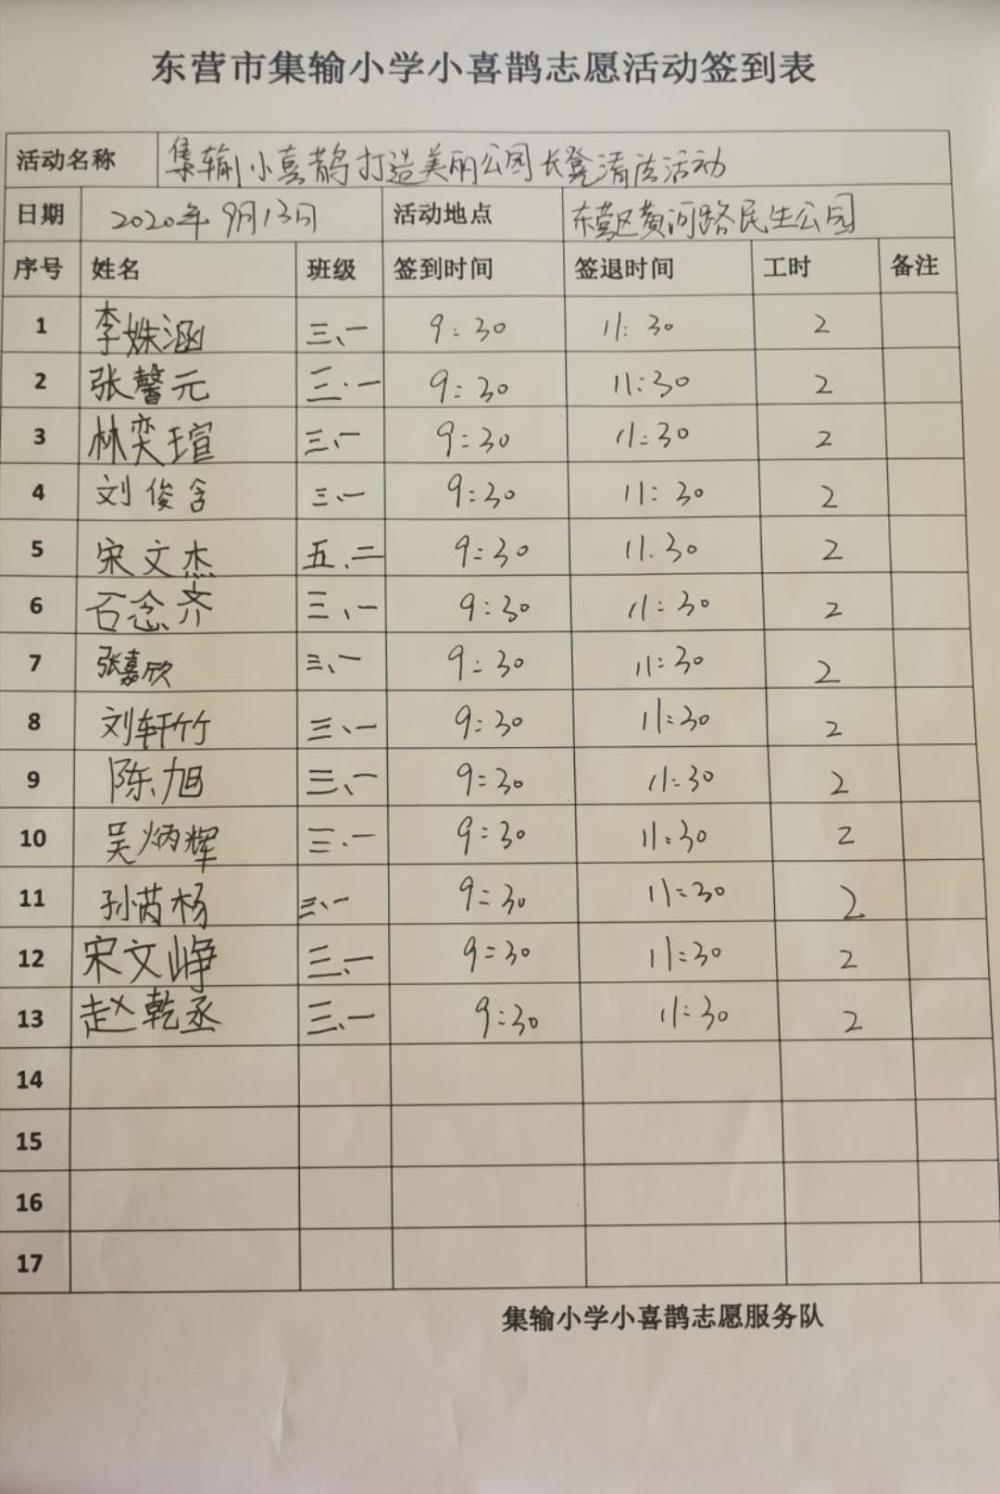 东营市集输小学小喜鹊志愿活动签到表
活动名称 集输小喜鹊打造美丽公园长凳清洁活动
日期 2020年9月13日 活动地点 东营区黄河路民生公园
序号 姓名 班级 签到时间 签退时间 工时 备注
1 李姝涵 三、一 9:30 11:30 2
2 张馨元 三·一 9:30 11:30 2
3 林奕瑄 三、一 9:30 11:30 2
4 刘俊含 三、一 9:30 11:30 2
5 宋文杰 五、二 9:30 11:30 2
6 石念齐 三、一 9:30 11:30 2
7 张嘉欣 三、一 9:30 11:30 2
8 刘轩竹 三、一 9:30 11:30 2
9 陈旭 三、一 9:30 11:30 2
10 吴炳辉 三·一 9:30 11:30 2
11 孙芮杨 三、一 9:30 11:30 2
12 宋文峥 三、一 9:30 11:30 2
13 赵乾丞 三、一 9:30 11:30 2
14
15
16
17
集输小学小喜鹊志愿服务队